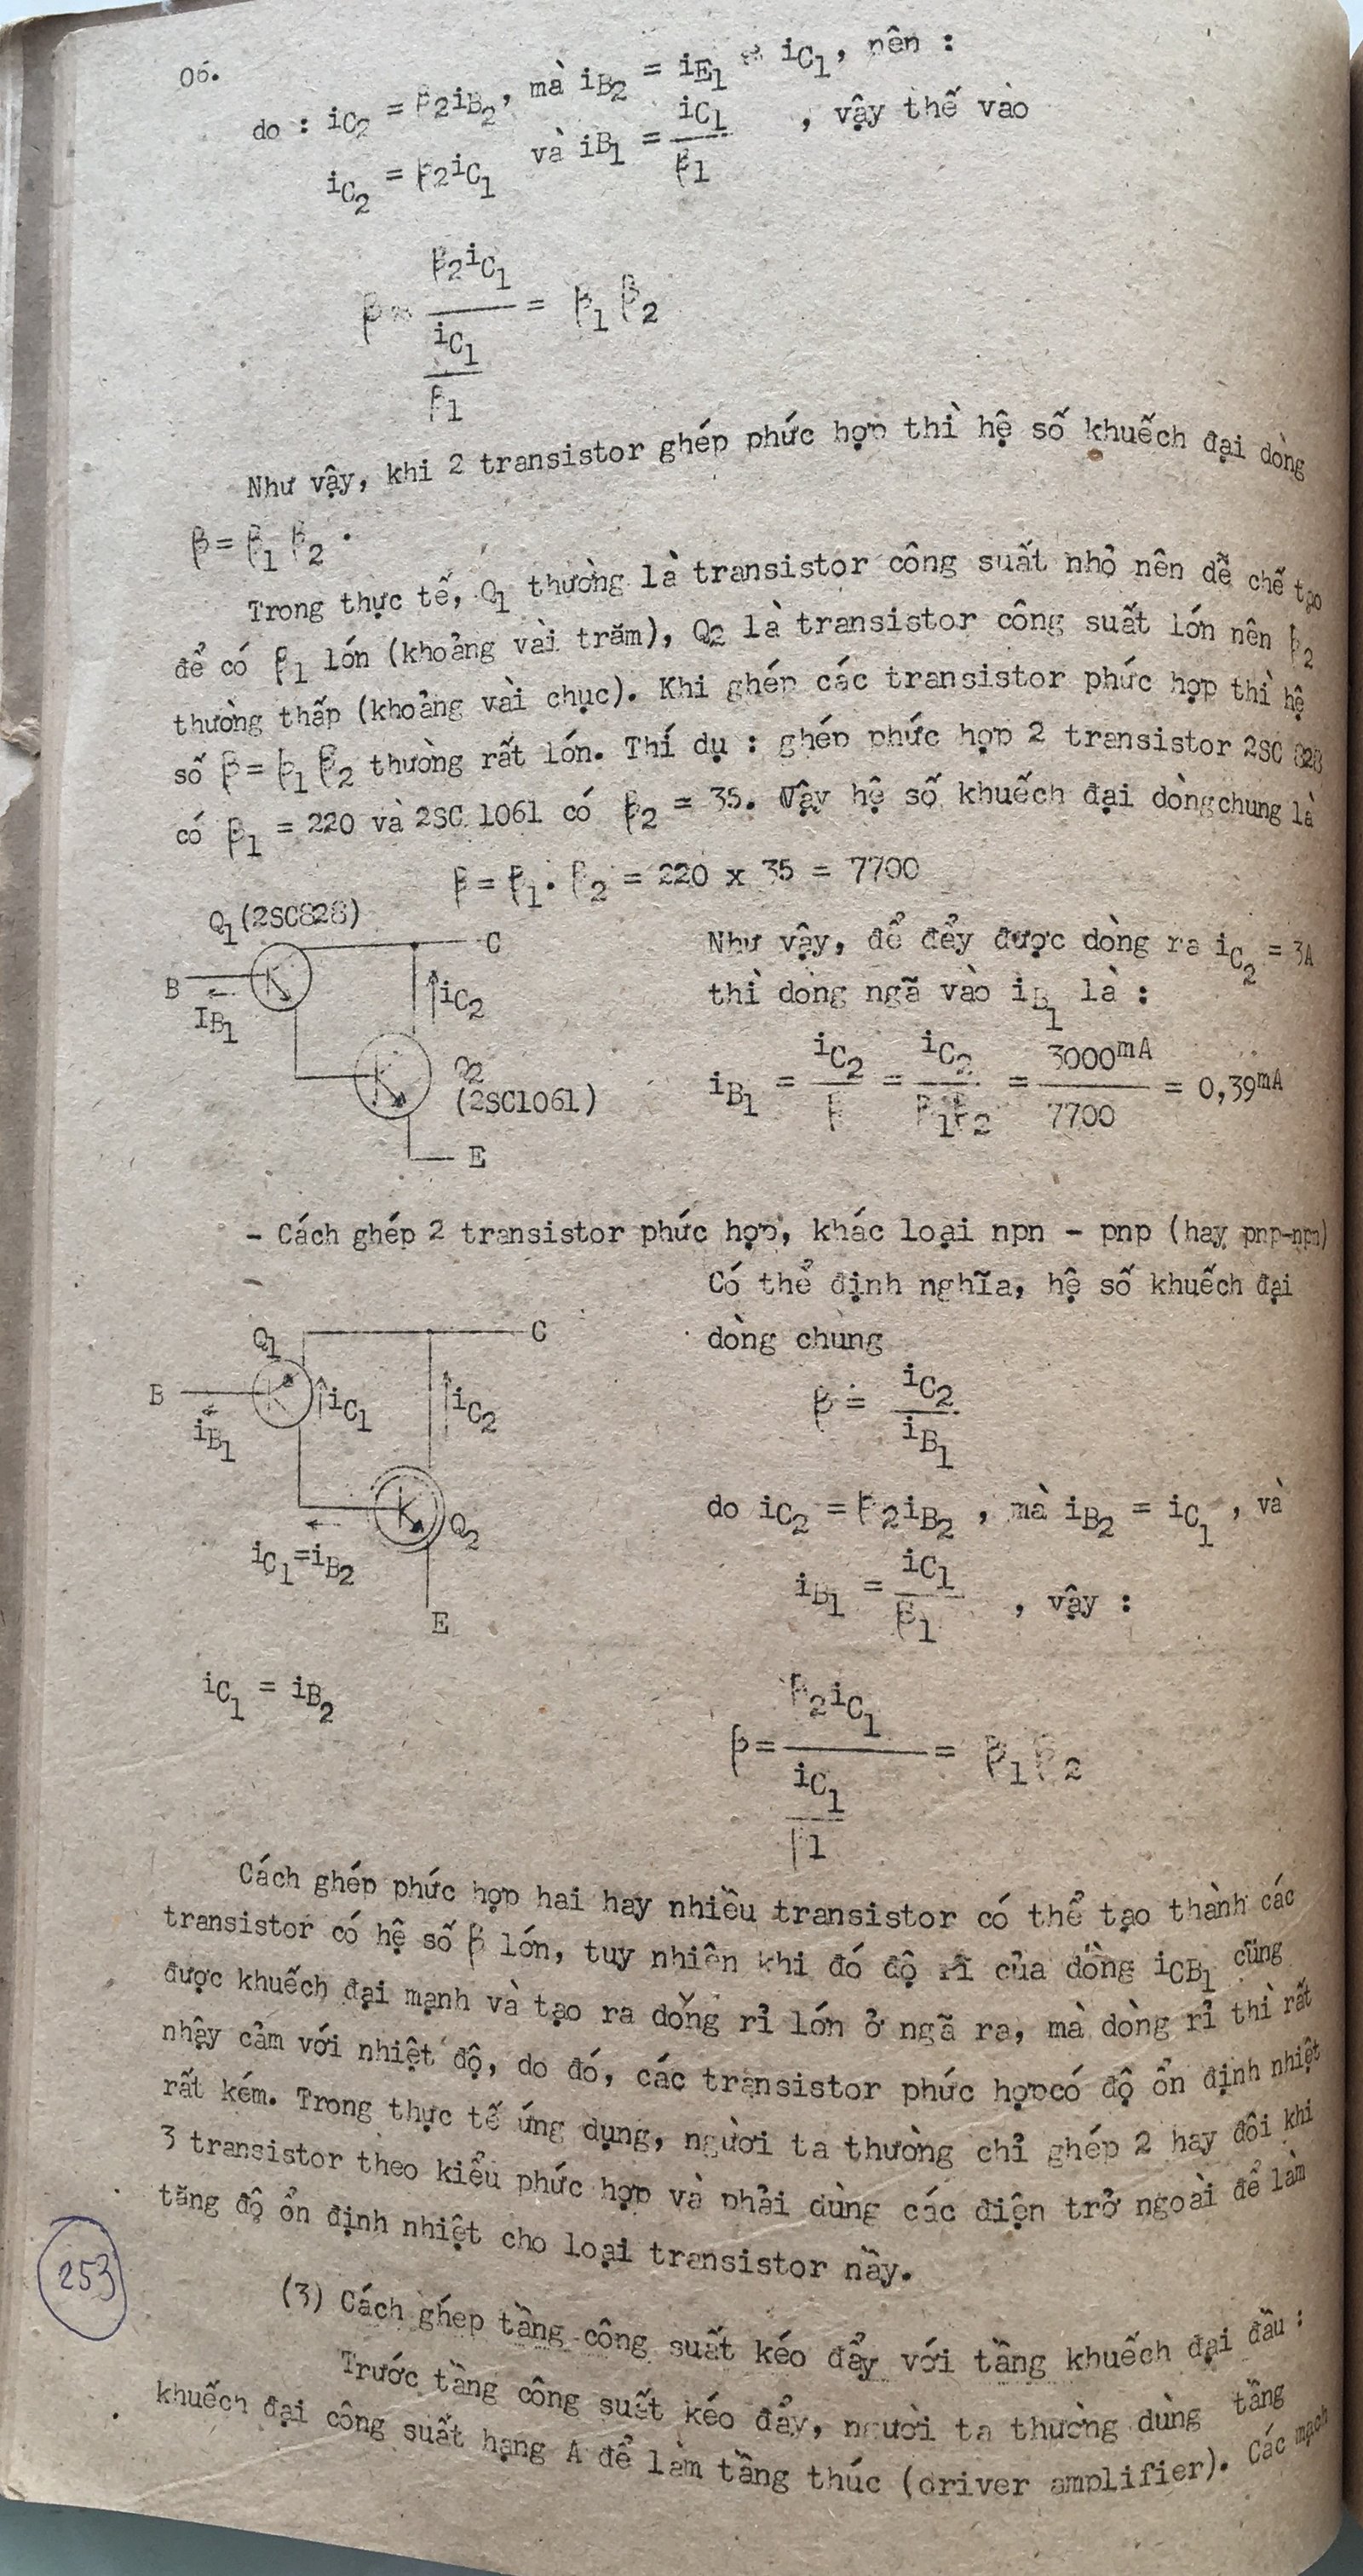 06.
do : iC2 = β2iB2, mà iB2 = iE1 ≈ iC1, nên :
iC2 = β2iC1 và iB1 = iC1/β1 , vậy thế vào
β ≈ β2iC1 / (iC1/β1) = β1 β2
Như vậy, khi 2 transistor ghép phức hợp thì hệ số khuếch đại dòng
β = β1 β2 .
Trong thực tế, Q1 thường là transistor công suất nhỏ nên dễ chế tạo
để có β1 lớn (khoảng vài trăm), Q2 là transistor công suất lớn nên β2
thường thấp (khoảng vài chục). Khi ghép các transistor phức hợp thì hệ
số β = β1 β2 thường rất lớn. Thí dụ : ghép phức hợp 2 transistor 2SC 828
có β1 = 220 và 2SC 1061 có β2 = 35. Vậy hệ số khuếch đại dòng chung là
β = β1. β2 = 220 x 35 = 7700
Q1 (2SC828)
C
B
IB1
iC2
Q2
(2SC1061)
E
Như vậy, để đẩy được dòng ra iC2 = 3A
thì dòng ngã vào iB1 là :
iB1 = iC2/β = iC2/β1β2 = 3000mA/7700 = 0,39mA
- Cách ghép 2 transistor phức hợp, khác loại npn - pnp (hay pnp-npn)
Có thể định nghĩa, hệ số khuếch đại
dòng chung
β = iC2/iB1
Q1
C
B
iB1
iC1
iC2
Q2
iC1=iB2
E
do iC2 = β2iB2 , mà iB2 = iC1 , và
iB1 = iC1/β1 , vậy :
iC1 = iB2
β = β2iC1 / (iC1/β1) = β1β2
Cách ghép phức hợp hai hay nhiều transistor có thể tạo thành các
transistor có hệ số β lớn, tuy nhiên khi đó độ rỉ của dòng iCB1 cũng
được khuếch đại mạnh và tạo ra dòng rỉ lớn ở ngã ra, mà dòng rỉ thì rất
nhậy cảm với nhiệt độ, do đó, các transistor phức hợp có độ ổn định nhiệt
rất kém. Trong thực tế ứng dụng, người ta thường chỉ ghép 2 hay đôi khi
3 transistor theo kiểu phức hợp và phải dùng các điện trở ngoài để làm
tăng độ ổn định nhiệt cho loại transistor nầy.
253
(3) Cách ghép tầng công suất kéo đẩy với tầng khuếch đại đầu :
Trước tầng công suất kéo đẩy, người ta thường dùng tầng
khuếch đại công suất hạng A để làm tầng thúc (driver amplifier). Các mạch